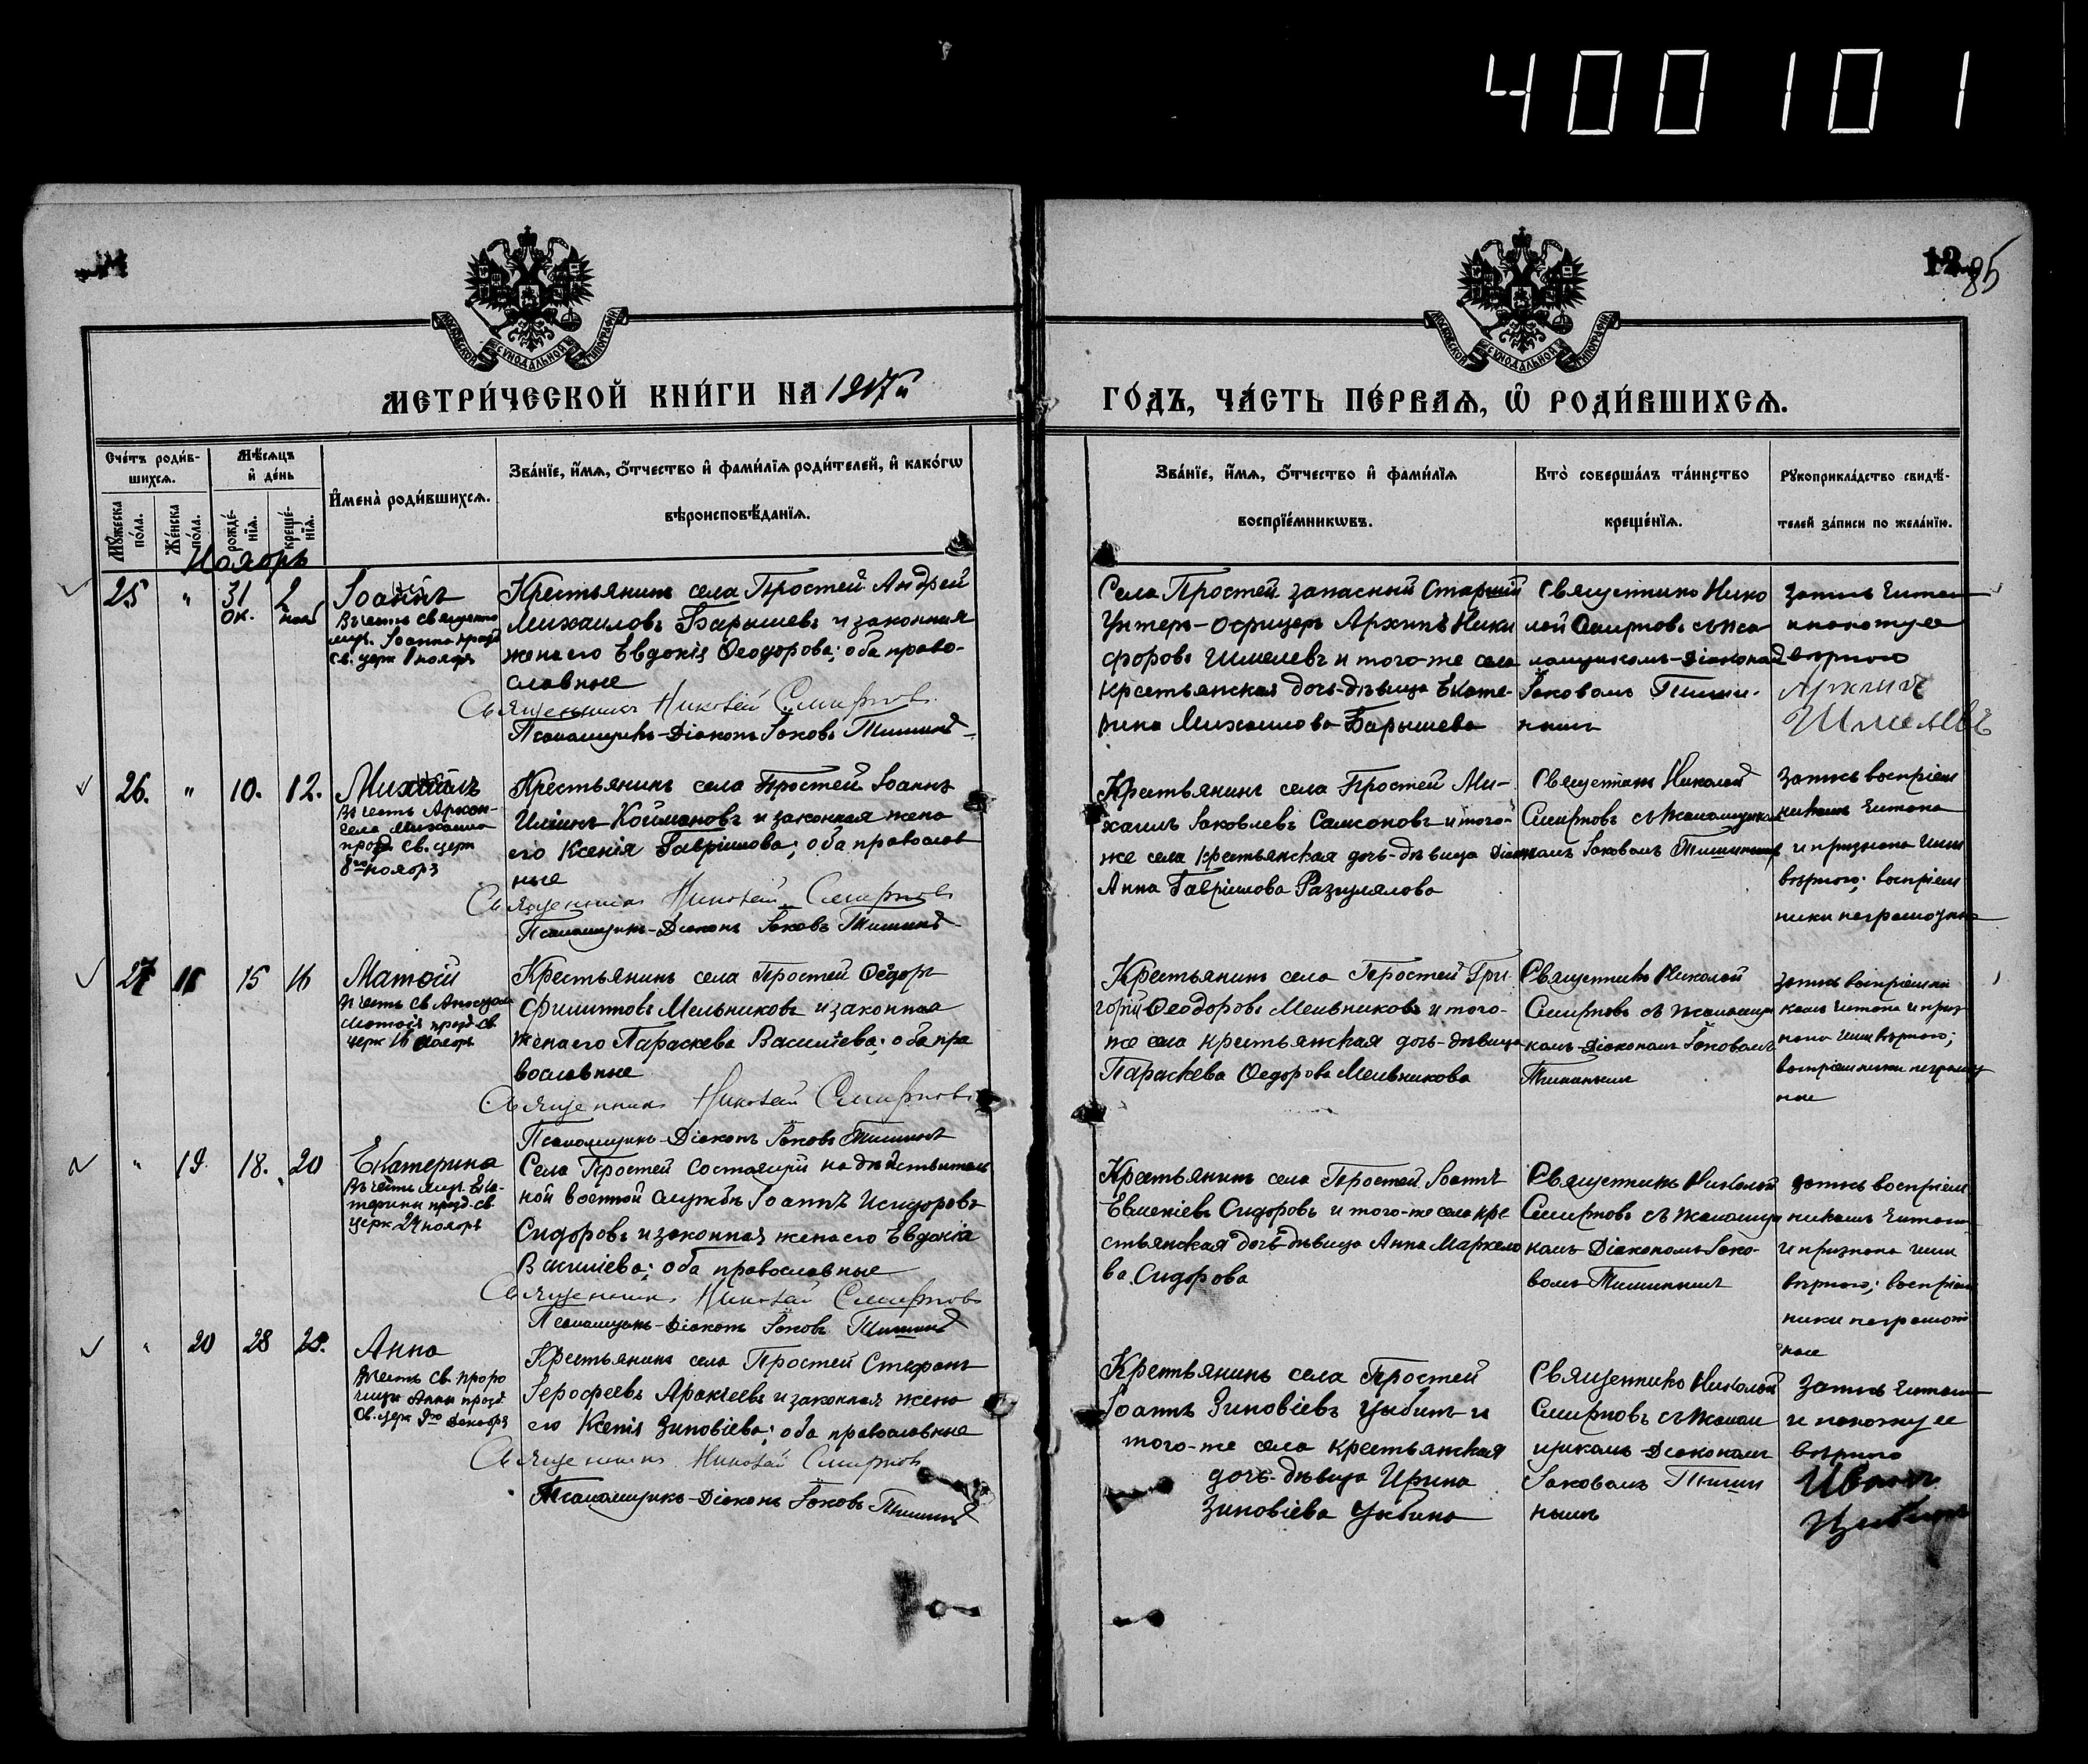 400101
12
85
МОСКОВСКОЙ СѴНОДАЛЬНОЙ ТИПОГРАФІИ
МОСКОВСКОЙ СѴНОДАЛЬНОЙ ТИПОГРАФІИ
МЕТРИ́ЧЕСКОЙ КНИ́ГИ НА 1917й
ГО́ДЪ, ЧА́СТЬ ПЕ́РВАѦ, Ѽ РОДИ́ВШИХСѦ.
Сче́тъ роди́в-
шихсѧ.
Мꙋ́жеска по́ла.
Же́нска по́ла.
Мѣ́сѧцъ
и҆ де́нь
рожде́-нїѧ.
креще́-нїѧ.
И҆мена̀ роди́вшихсѧ.
Зва́нїе, и҆́мѧ, ѻ҆́тчество и҆ фами́лїѧ роди́телей, и҆ како́гѡ
вѣроисповѣ́данїѧ.
Зва́нїе, и҆́мѧ, ѻ҆́тчество и҆ фами́лїѧ
воспрїе́мникѡвъ.
Кто̀ соверша́лъ та́инство
креще́нїѧ.
Рꙋкоприкла́дство свидѣ́-
телей за́писи по жела́нїю.
Ноябрь
25 " 31 Ок. 2 нояб
Іоаннъ
Въ честь священно
муч. Іоанна празд
св. церк 1 ноября
Крестьянинъ села Простей Андрей
Михаиловъ Барышевъ и законная
жена его Евдокія Ѳеодорова; оба право-
славные
Священникъ Николай Смирновъ
Псаломщикъ-Діаконъ Іаковъ Тишинъ
Села Простей запасный Старшій
Унтеръ-Офицеръ Архипъ Ники
форовъ Шмелевъ и того-же села
крестьянская дочь-дѣвица Екате-
рина Михаилова Барышева
Священникъ Нико
лай Смирновъ съ пса
ломщикомъ-Діакономъ
Іаковомъ Тиши-
нымъ
Запись читалъ
и нахожу ее
вѣрною
Архипъ
Шмелевъ
26. " 10. 12.
Михаилъ
Въ честь Архан-
гела Михаила
празд св. церк
8го ноября
Крестьянинъ села Простей Іоаннъ
Ильинъ Коймановъ и законная жена
его Ксенія Гавріилова; оба православ
ные
Священникъ Николай Смирновъ
Псаломщикъ-Діаконъ Іаковъ Тишинъ
Крестьянинъ села Простей Ми-
хаилъ Іаковлевъ Самсоновъ и того-
же села крестьянская дочь-дѣвица
Анна Гавріилова Разгулялова
Священникъ Николай
Смирновъ съ псаломщикомъ
Діакономъ Іаковомъ Тишинымъ
Запись воспріем
никамъ читана
и признана ими
вѣрною; воспріем
ники неграмотны
27 15 16
Матѳій
Въ честь св Апостола
Матѳія празд св
церк 16 Ноября
Крестьянинъ села Простей Ѳедоръ
Филипповъ Мельниковъ и законная
жена его Параскева Василіева; оба пра
вославные
Священникъ Николай Смирновъ
Псаломщикъ-Діаконъ Іаковъ Тишинъ
Крестьянинъ села Простей Гри
горій Ѳеодоровъ Мельниковъ и того-
же села крестьянская дочь-дѣвица
Параскева Ѳедорова Мельникова
Священникъ Николай
Смирновъ съ псаломщи
комъ-Діакономъ Іаковомъ
Тишинымъ
Запись воспріемни
камъ читана и приз
нана ими вѣрною;
воспріемники неграмот
ные
" 19 18. 20
Екатерина
Въ честь муч. Ека-
терины празд. св
церк 24 ноября
Села Простей состоящій на дѣйствитель
ной военной службѣ Іоаннъ Исидоровъ
Сидоровъ и законная жена его Евдокія
Василіева; оба православные
Священникъ Николай Смирновъ
Псаломщикъ-Діаконъ Іаковъ Тишинъ
Крестьянинъ села Простей Іоаннъ
Евменіевъ Сидоровъ и того-же села кре
стьянская дочь-дѣвица Анна Маркело
ва Сидорова
Священникъ Николай
Смирновъ съ псаломщи
комъ-Діакономъ Іако-
вомъ Тишинымъ
Запись воспріем
никамъ читана
и признана ими
вѣрною; воспріем
ники неграмот
ные
" 20 28
Анна
Въ честь св. проро
чицы Анны празд.
Св. церк 9го Декабря
Крестьянинъ села Простей Стефанъ
Іероѳеевъ Аракчеевъ и законная жена
его Ксенія Зиновіева; оба православные
Священникъ Николай Смирновъ
Псаломщикъ-Діаконъ Іаковъ Тишинъ
Крестьянинъ села Простей
Іоаннъ Зиновіевъ Цыбинъ и
того-же села крестьянская
дочь-дѣвица Ирина
Зиновіева Цыбина
Священникъ Николай
Смирновъ съ псалом
щикомъ-Діакономъ
Іаковомъ Тиши
нымъ
Запись читалъ
и нахожу ее
вѣрною
Иванъ
Цыбинъ